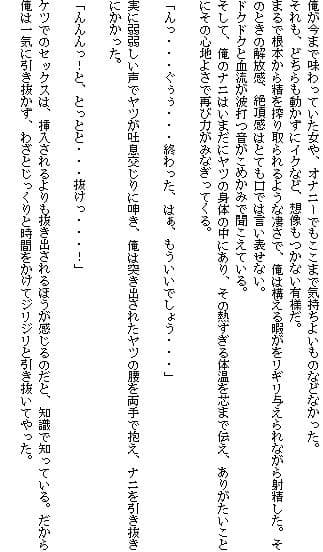 俺が今まで味わっていた女や、オナニーでもここまで気持ちよいものなどなかった。
それも、どちらも動かずにイクなど、想像もつかない有様だ。
まるで根本から精を搾り取られるような凄さで、俺は構える暇がをリギリ与えられながら射精した。そ
のときの解放感、絶頂感はとても口では言い表せない。
ドクドクと血流が波打つ音がこめかみで聞こえている。
そして、俺のナニはいまだにヤツの身体の中にあり、その熱すぎる体温を芯まで伝え、ありがたいこと
にその心地よさで再び力がみなぎってくる。
「んっ・・・ぐぅぅ・・・終わった、はぁ、もういいでしょう・・・」
実に弱弱しい声でヤツが吐息交じりに呻き、俺は突き出されたヤツの腰を両手で抱え、ナニを引き抜き
にかかった。
「んんんっ！と、とっとと・・・抜けっ・・・！」
ケツでのセックスは、挿入されるよりも抜き出されるほうが感じるのだと、知識で知っている。だから
俺は一気に引き抜かず、わざとじっくりと時間をかけてジリジリと引き抜いてやった。